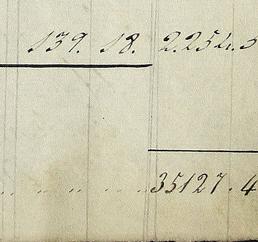 139. 18. 2.254.5
35127.4